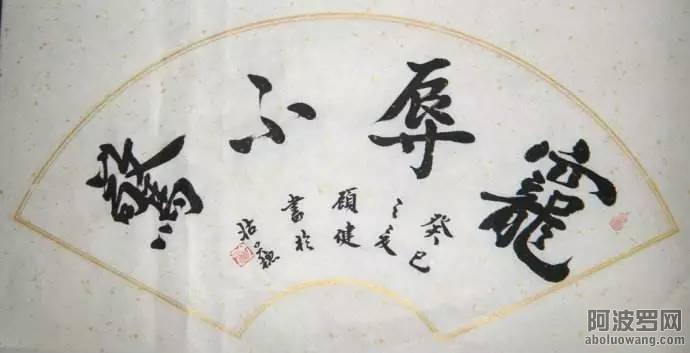 寵辱不驚
癸巳
之夏
顧健
書於
姑蘇
阿波罗网
aboluowang.com